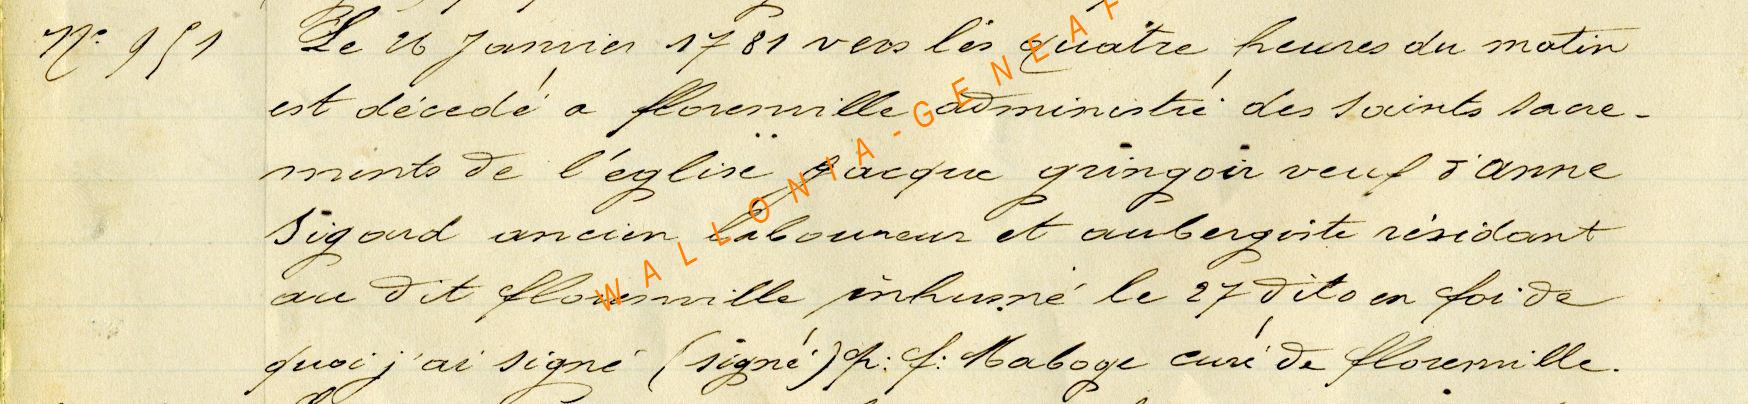 N° 951
Le 26 Janvier 1781 vers les quatre heures du matin
est décedé a florenville administré des saints sacre-
ments de l'église Jacque gringoir veuf d'anne
Sigard ancien laboureur et aubergiste résidant
au dit florenville inhumé le 27 dito en foi de
quoi j'ai signé (signé) p: f: Maboge curé de florenville.
WALLONIA-GENEA